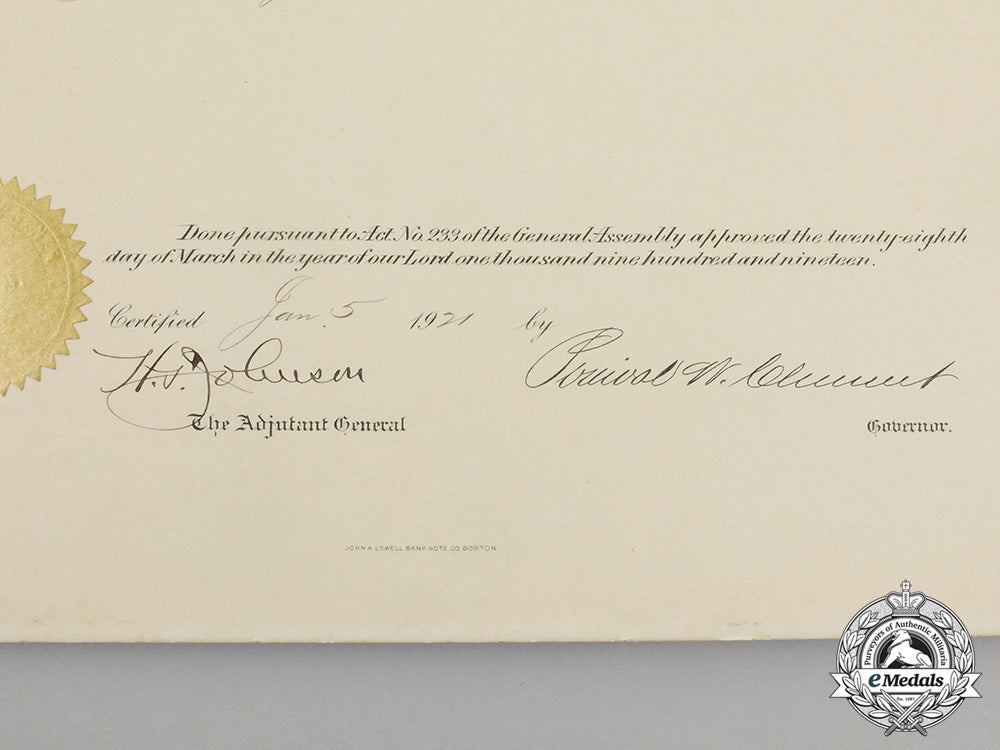 Done pursuant to Act. No. 233 of the General Assembly approved the twenty-eighth
day of March in the year of our Lord one thousand nine hundred and nineteen.
Certified Jan. 5 1921 by
H. T. Johnson Percival W. Clement
The Adjutant General Governor.
JOHN A. LOWELL BANK NOTE CO. BOSTON.
Purveyors of Authentic Militaria
eMedals